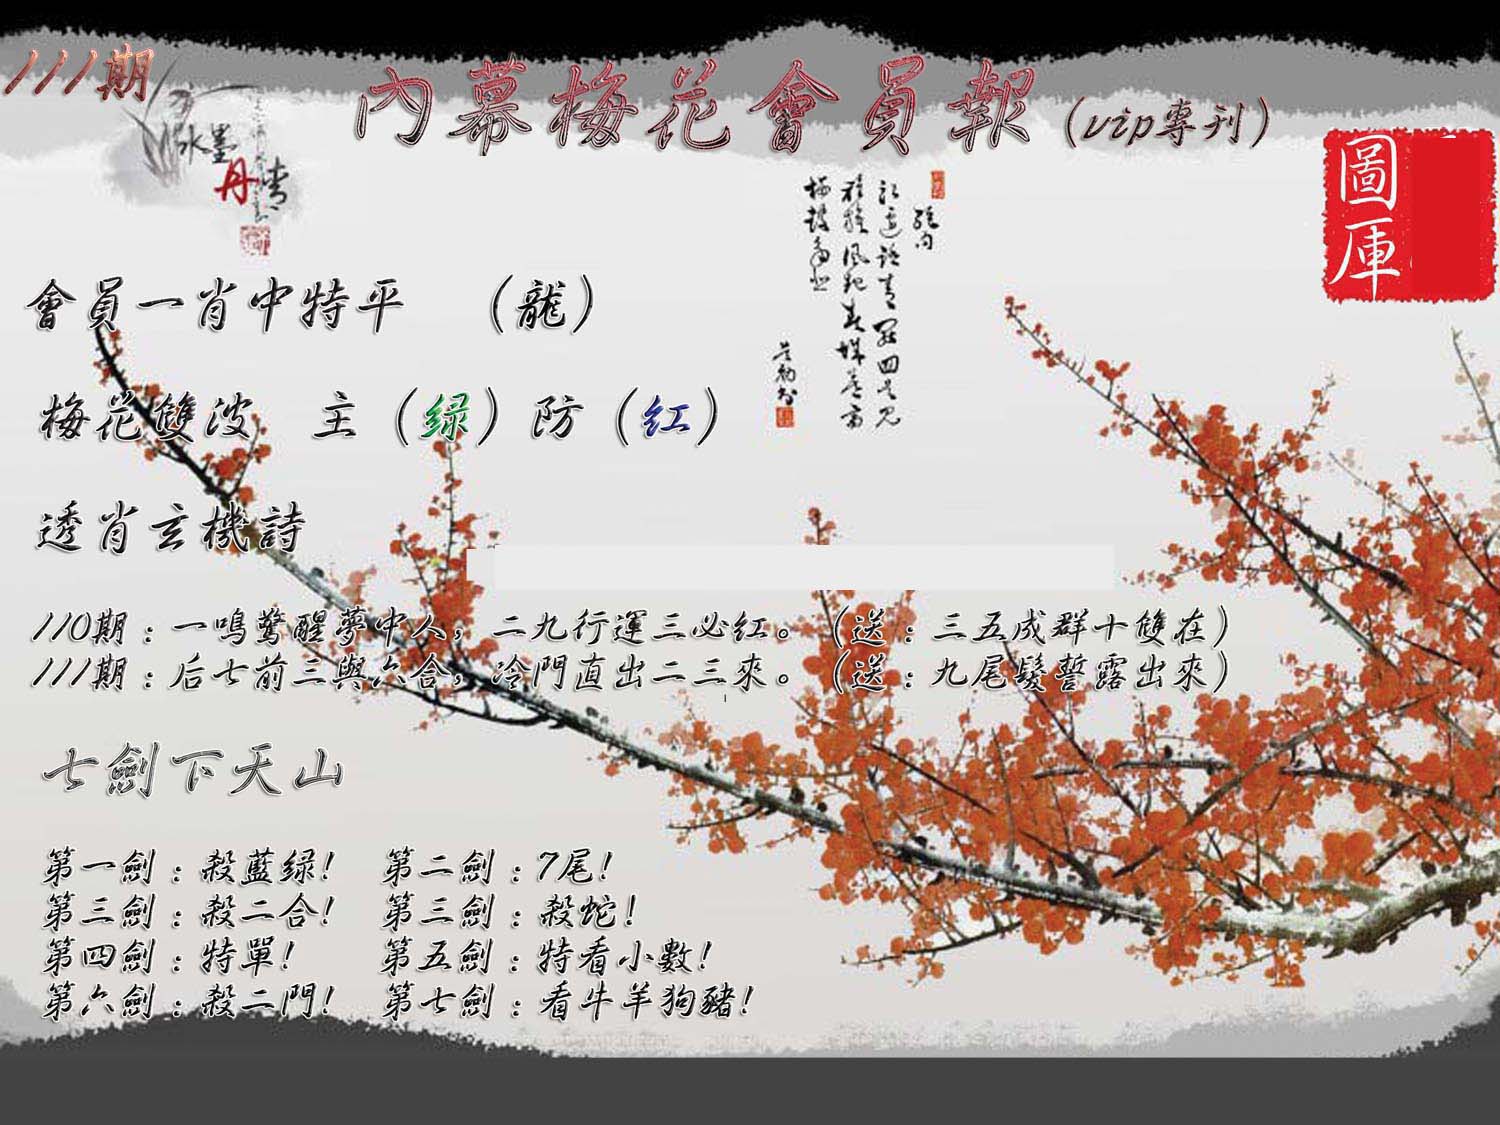 111期
內幕梅花會員報(vip專刊)
水墨
丹青
圖庫
會員一肖中特平 (龍)
梅花雙波 主(绿)防(红)
透肖玄機詩
110期:一鳴驚醒夢中人,二九行運三必红。(送:三五成群十雙在)
111期:后七前三與六合,冷門直出二三來。(送:九尾髮誓露出來)
七劍下天山
第一劍:殺藍绿! 第二劍:7尾!
第三劍:殺二合! 第三劍:殺蛇!
第四劍:特單! 第五劍:特看小數!
第六劍:殺二門! 第七劍:看牛羊狗豬!